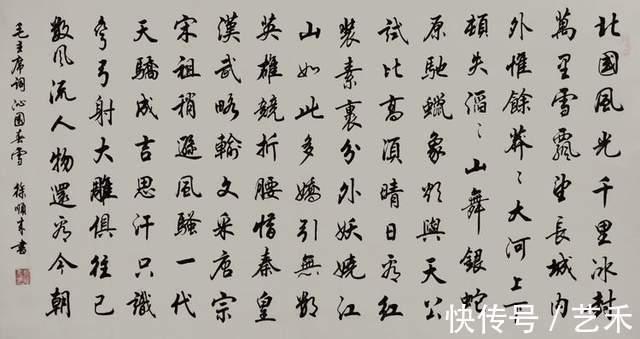 北國風光千里冰封
萬里雪飄望長城内
外惟餘莽〻大河上下
頓失滔〻山舞銀蛇
原馳蠟象欲與天公
試比高須晴日看紅
裝素裹分外妖嬈江
山如此多嬌引無數
英雄競折腰惜秦皇
漢武略輸文采唐宗
宋祖稍遜風騷一代
天驕成吉思汗只識
彎弓射大雕俱往已
數風流人物還看今朝
毛主席詞沁園春雪 徐順来書
快传号 / 艺禾